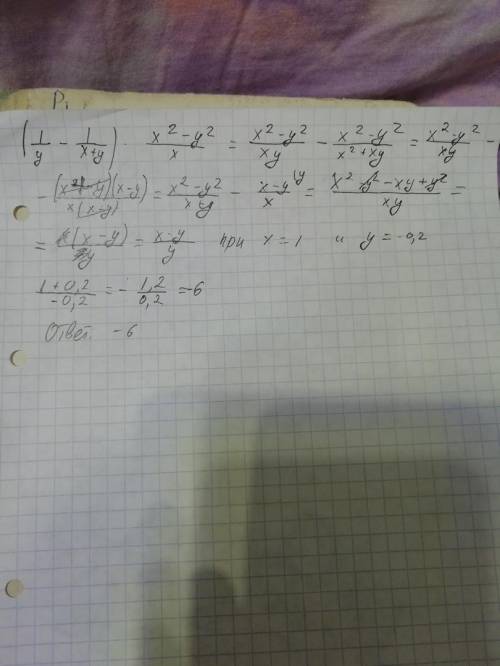 (1/y - 1/(x+y)) · (x² - y²)/x = (x² - y²)/(xy) - (x² - y²)/(x² + xy) = (x² - y²)/(xy) -
- ((x + y)(x - y))/(x(x - y)) = (x² - y²)/(xy) - (x - y)/x \y = (x² - y² - xy + y²)/(xy) =
= x(x - y)/(xy) = (x - y)/y при x = 1 и y = -0,2
(1 + 0,2)/(-0,2) = - 1,2/0,2 = -6
Ответ. -6